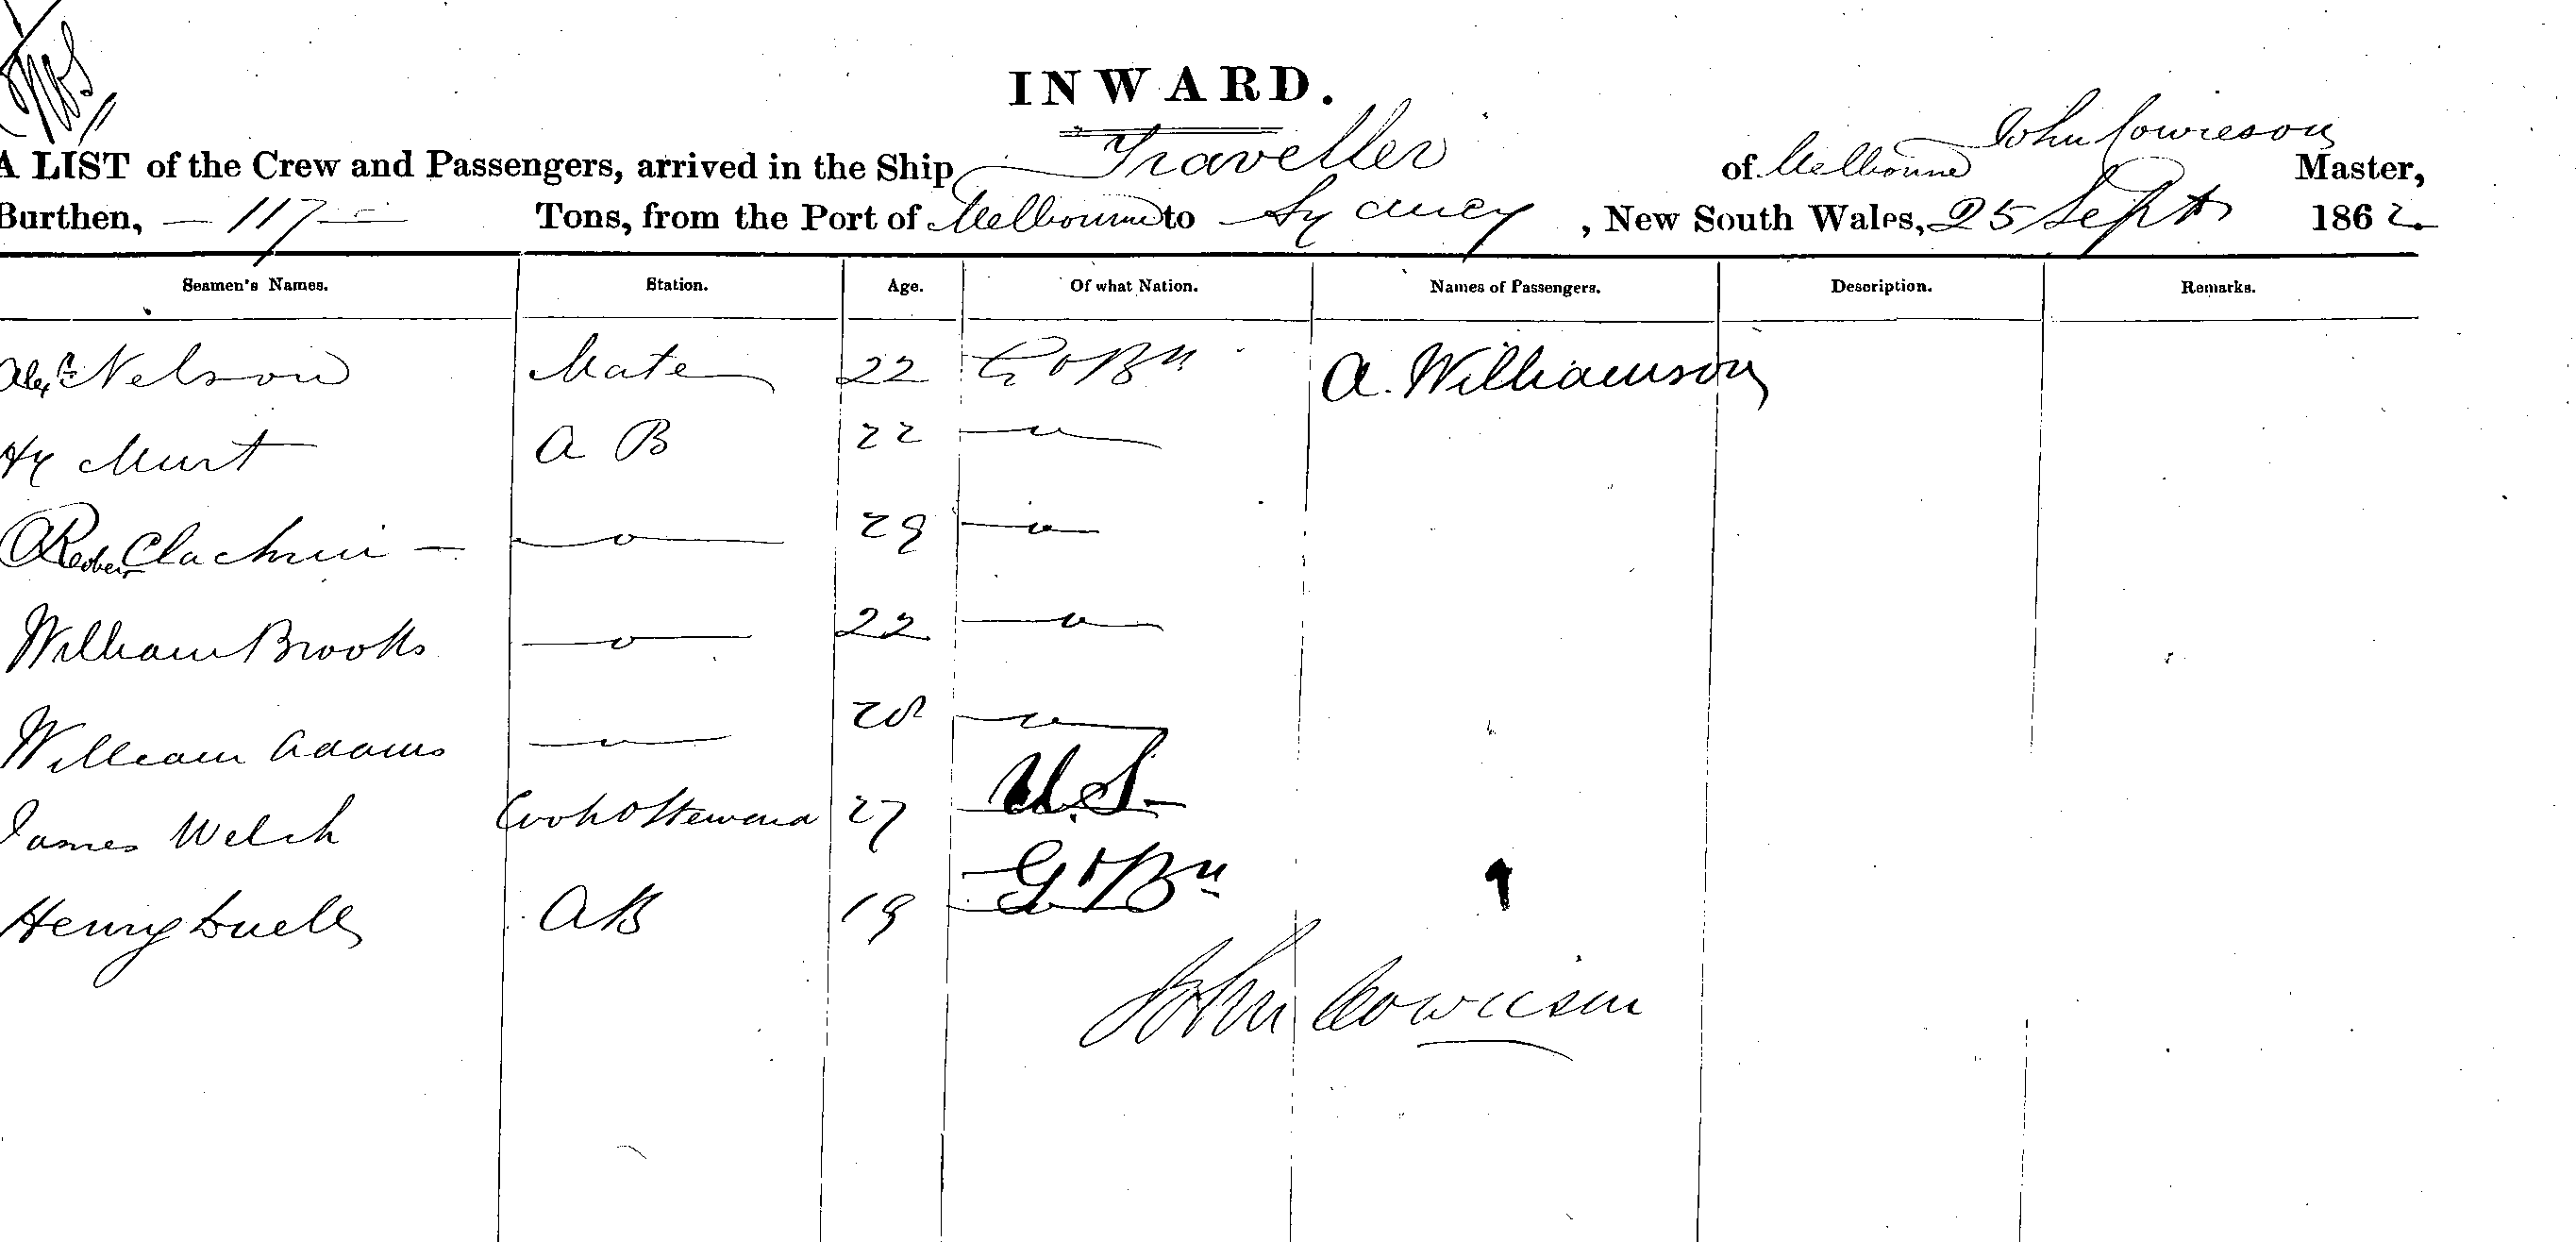 INWARD.
A LIST of the Crew and Passengers, arrived in the Ship Traveller of Melbourne John Cowieson Master,
Burthen, 117 Tons, from the Port of Melbourne to Sydney, New South Wales, 25 Sept 1862.
Seamen's Names. Station. Age. Of what Nation. Names of Passengers. Description. Remarks.
Alexr Nelson Mate 22 Gt Bn A. Williamson
Hy Murt A B 22 — " —
Robert — o — 29 — o —
William Brooks — o — 22 — o —
William Adams — " — 28 — " —
James Welch Cook & Steward 27 U.S.
Henry Duell AB 19 Gt Bn
John Cowieson